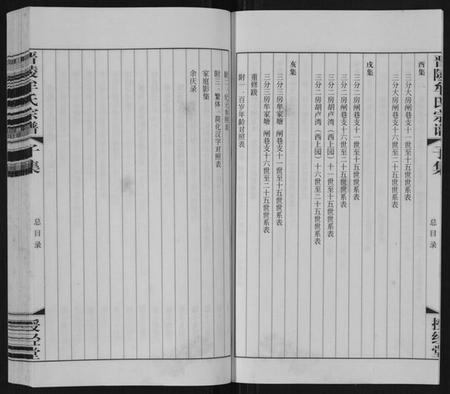 晋陵牟氏宗谱
子集
总目录
授经堂
酉集
三分大房闸巷支十一世至十五世世系表
三分大房闸巷支十六世至二十五世世系表
戌集
三分二房闸巷支十一世至十五世世系表
三分二房闸巷支十六世至二十五世世系表
三分二房胡卢湾（西上园）十一世至十五世世系表
三分二房胡卢湾（西上园）十六世至二十五世世系表
亥集
三分三房牟家塘、闸巷支十一世至十五世世系表
三分三房牟家塘、闸巷支十六世至二十五世世系表
重修跋
附一：百岁年龄对照表
附三：繁体、简化汉字对照表
家庭影集
余庆录
晋陵牟氏宗谱
子集
总目录
授经堂